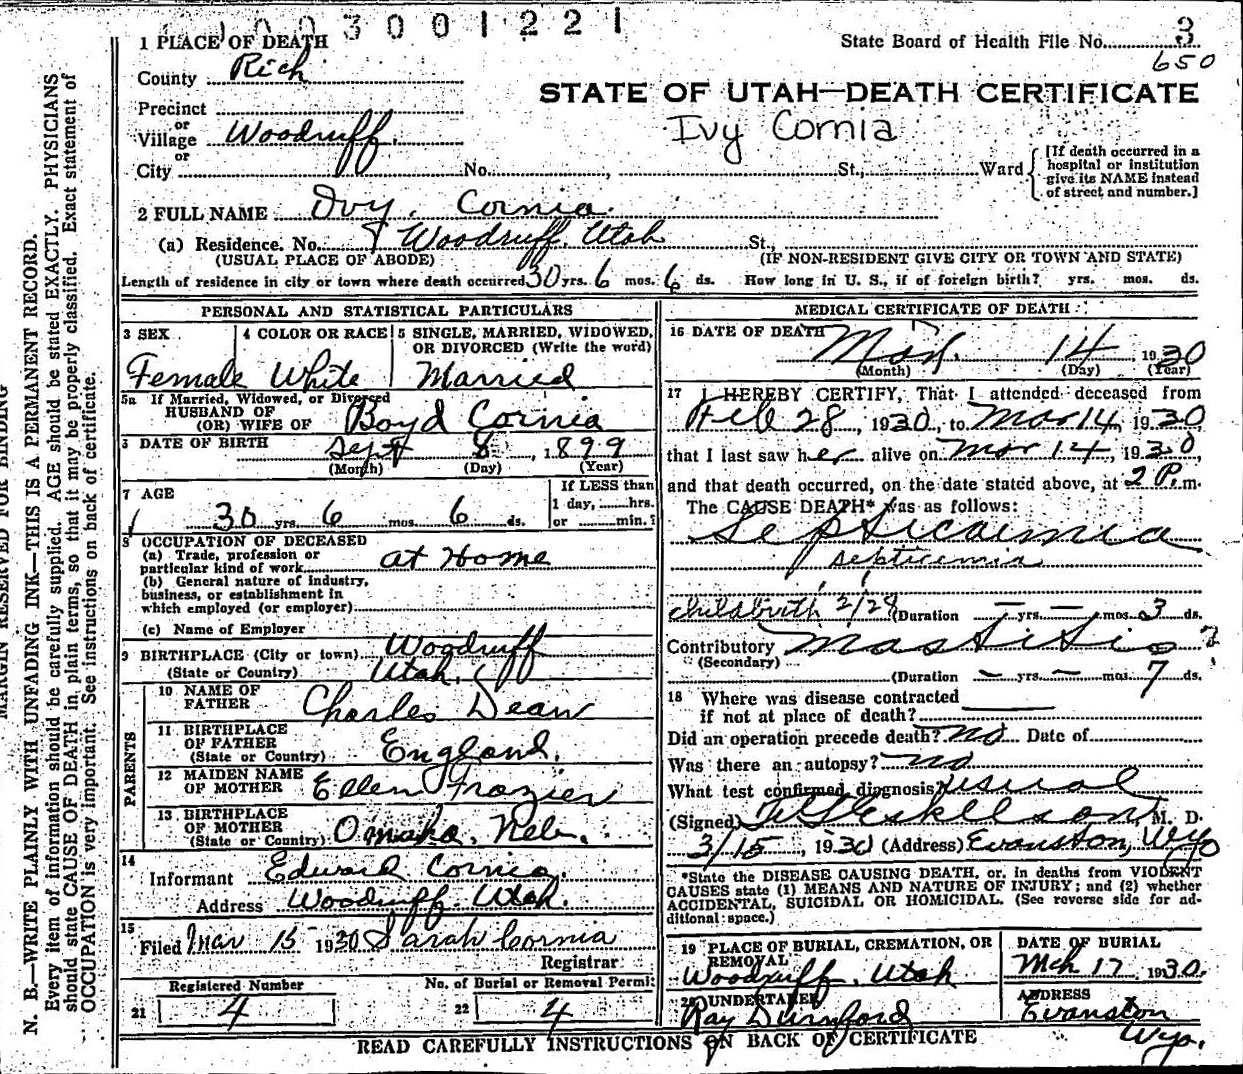 3001221
1 PLACE OF DEATH
State Board of Health File No. 3
650
County Rich
STATE OF UTAH—DEATH CERTIFICATE
Ivy Cornia
Precinct
or
Village Woodruff.
or
City No. , St., Ward
[If death occurred in a
hospital or institution
give its NAME instead
of street and number.]
2 FULL NAME Ivy. Cornia.
(a) Residence. No. Woodruff. Utah St.,
(USUAL PLACE OF ABODE) (IF NON-RESIDENT GIVE CITY OR TOWN AND STATE)
Length of residence in city or town where death occurred 30 yrs. 6 mos. 6 ds. How long in U. S., if of foreign birth? yrs. mos. ds.
PERSONAL AND STATISTICAL PARTICULARS
3 SEX 4 COLOR OR RACE 5 SINGLE, MARRIED, WIDOWED,
OR DIVORCED (Write the word)
Female White Married
5a If Married, Widowed, or Divorced
HUSBAND OF
(OR) WIFE OF Boyd Cornia
DATE OF BIRTH Sept 8, 1899
(Month) (Day) (Year)
7 AGE If LESS than
1 day, hrs.
30 yrs. 6 mos. 6 ds. or min.?
8 OCCUPATION OF DECEASED
(a) Trade, profession or
particular kind of work at Home
(b) General nature of industry,
business, or establishment in
which employed (or employer)
(c) Name of Employer
9 BIRTHPLACE (City or town) Woodruff
(State or Country) Utah.
PARENTS
10 NAME OF
FATHER Charles Dean
11 BIRTHPLACE
OF FATHER
(State or Country) England.
12 MAIDEN NAME
OF MOTHER Ellen Frazier
13 BIRTHPLACE
OF MOTHER
(State or Country) Omaha, Neb.
14
Informant Edward Cornia.
Address Woodruff. Utah.
15
Filed Mar 15 1930 Sarah Cornia
Registrar
Registered Number No. of Burial or Removal Permit
21 4 22 4
MEDICAL CERTIFICATE OF DEATH
16 DATE OF DEATH Mar. 14 1930
(Month) (Day) (Year)
17 I HEREBY CERTIFY, That I attended deceased from
Feb 28, 1930, to Mar 14, 1930,
that I last saw her alive on Mar 14, 1930,
and that death occurred, on the date stated above, at 2 P. m.
The CAUSE DEATH* was as follows:
Septicaemia
septicemia
childbirth 2/28 (Duration — yrs. — mos. 3 ds.
Contributory Mastitis ?
(Secondary)
(Duration — yrs. — mos. 7 ds.
18 Where was disease contracted
if not at place of death?
Did an operation precede death? no Date of
Was there an autopsy? no
What test confirmed diagnosis usual
(Signed) M. D.
3/15, 1930 (Address) Evanston, Wyo
*State the DISEASE CAUSING DEATH, or, in deaths from VIOLENT
CAUSES state (1) MEANS AND NATURE OF INJURY; and (2) whether
ACCIDENTAL, SUICIDAL OR HOMICIDAL. (See reverse side for ad-
ditional space.)
19 PLACE OF BURIAL, CREMATION, OR
REMOVAL
Woodruff, Utah
DATE OF BURIAL
Mch 17, 1930.
20 UNDERTAKER
Ray Durnford
ADDRESS
Evanston
Wyo.
READ CAREFULLY INSTRUCTIONS ON BACK OF CERTIFICATE
MARGIN RESERVED FOR BINDING
N. B.—WRITE PLAINLY WITH UNFADING INK—THIS IS A PERMANENT RECORD.
Every item of information should be carefully supplied. AGE should be stated EXACTLY. PHYSICIANS
should state CAUSE OF DEATH in plain terms, so that it may be properly classified. Exact statement of
OCCUPATION is very important. See instructions on back of certificate.